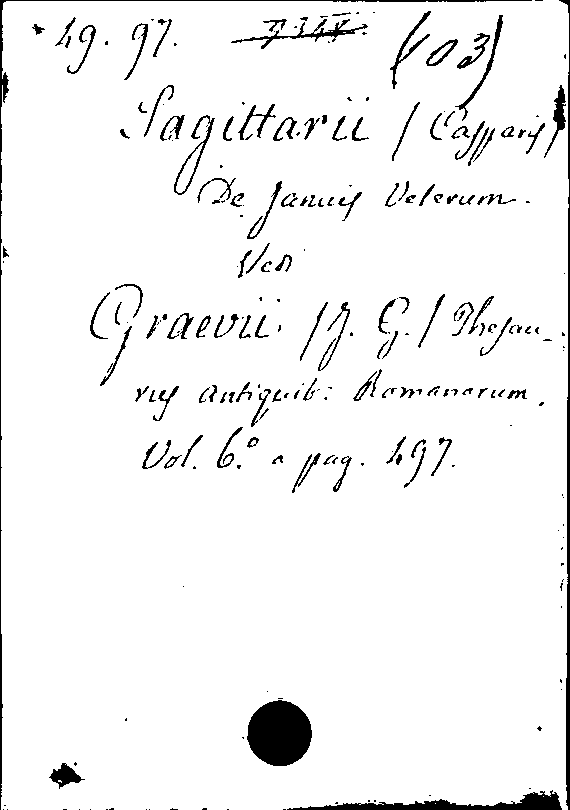 49. 97. (103)
Sagittarii / Casparis /
De Januis Veterum.
Ved
Graevii / J. G. / Thesau-
rus Antiquit: Romanarum.
Vol. 6.º a pag. 497.